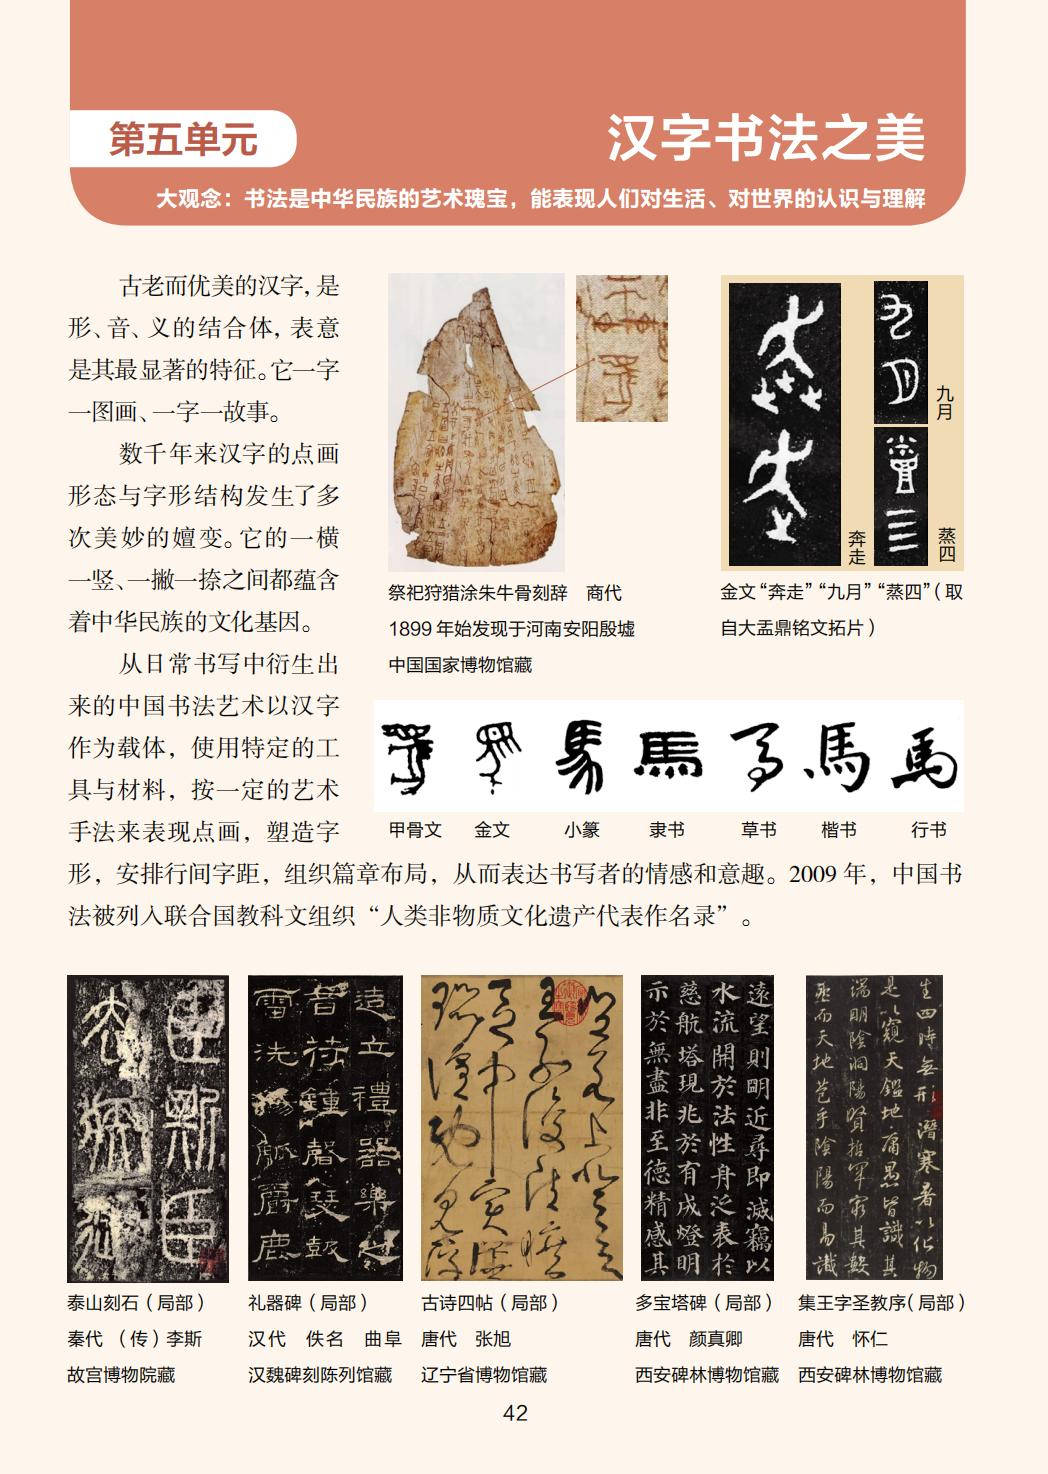 第五单元
汉字书法之美
大观念：书法是中华民族的艺术瑰宝，能表现人们对生活、对世界的认识与理解
古老而优美的汉字，是
形、音、义的结合体，表意
是其最显著的特征。它一字
一图画、一字一故事。
数千年来汉字的点画
形态与字形结构发生了多
次美妙的嬗变。它的一横
一竖、一撇一捺之间都蕴含
着中华民族的文化基因。
从日常书写中衍生出
来的中国书法艺术以汉字
作为载体，使用特定的工
具与材料，按一定的艺术
手法来表现点画，塑造字
形，安排行间字距，组织篇章布局，从而表达书写者的情感和意趣。2009 年，中国书
法被列入联合国教科文组织“人类非物质文化遗产代表作名录”。
祭祀狩猎涂朱牛骨刻辞　商代
1899 年始发现于河南安阳殷墟
中国国家博物馆藏
奔走
九月
蒸四
金文“奔走”“九月”“蒸四”（取
自大盂鼎铭文拓片）
馬 馬 馬 馬 馬 馬 馬
甲骨文 金文 小篆 隶书 草书 楷书 行书
遠望則明近尋即滅竊以
水流開於法性舟泛表於
慈航塔現兆於有成燈明
示於無盡非至德精感其
生四時無形潛寒暑以化物
是以窺天鑑地庸愚皆識其
端明陰洞陽賢哲罕窮其數
然而天地苞乎陰陽而易識
泰山刻石（局部）
秦代　（传）李斯
故宫博物院藏
礼器碑（局部）
汉代　佚名　曲阜
汉魏碑刻陈列馆藏
古诗四帖（局部）
唐代　张旭
辽宁省博物馆藏
多宝塔碑（局部）
唐代　颜真卿
西安碑林博物馆藏
集王字圣教序（局部）
唐代　怀仁
西安碑林博物馆藏
42